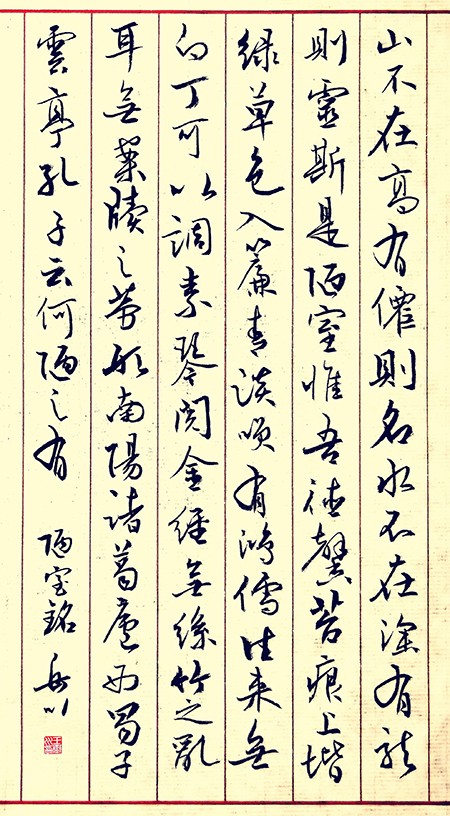 山不在高有僊則名水不在深有龍
則靈斯是陋室惟吾德馨苔痕上堦
綠草色入簾青談咲有鴻儒往来無
白丁可以調素琴閱金經無絲竹之亂
耳無案牘之勞形南陽諸葛廬西蜀子
雲亭孔子云何陋之有 陋室銘 岳川